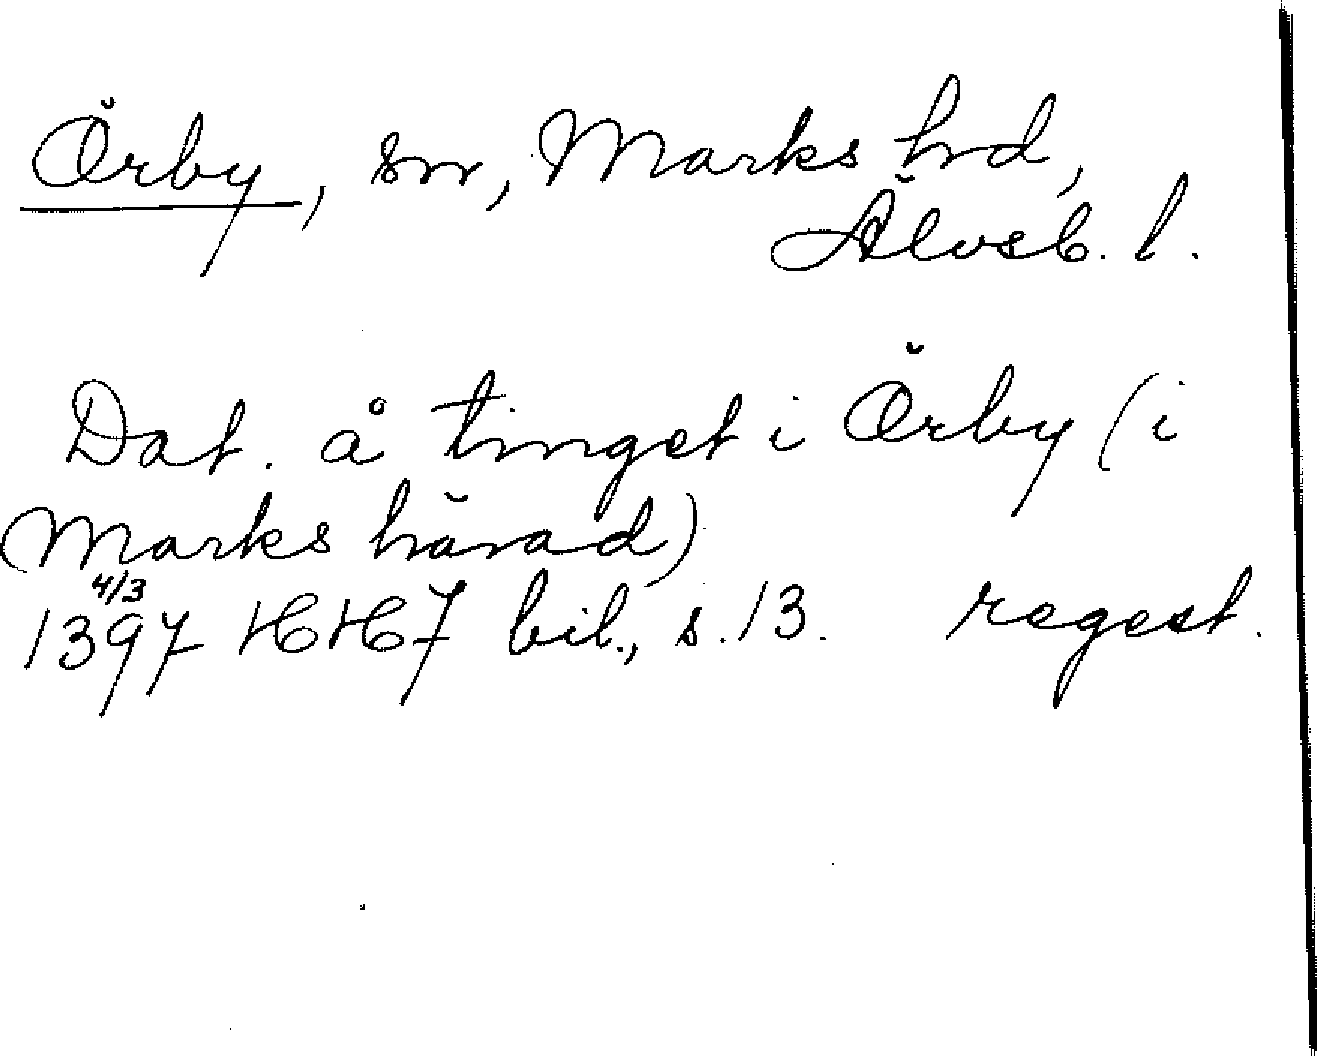 Örby, sn, Marks hrd,
Älvsb. l.
Dat. å tinget i Örby (i
Marks härad)
4/3
1397 HH 7 bil., s. 13. regest.